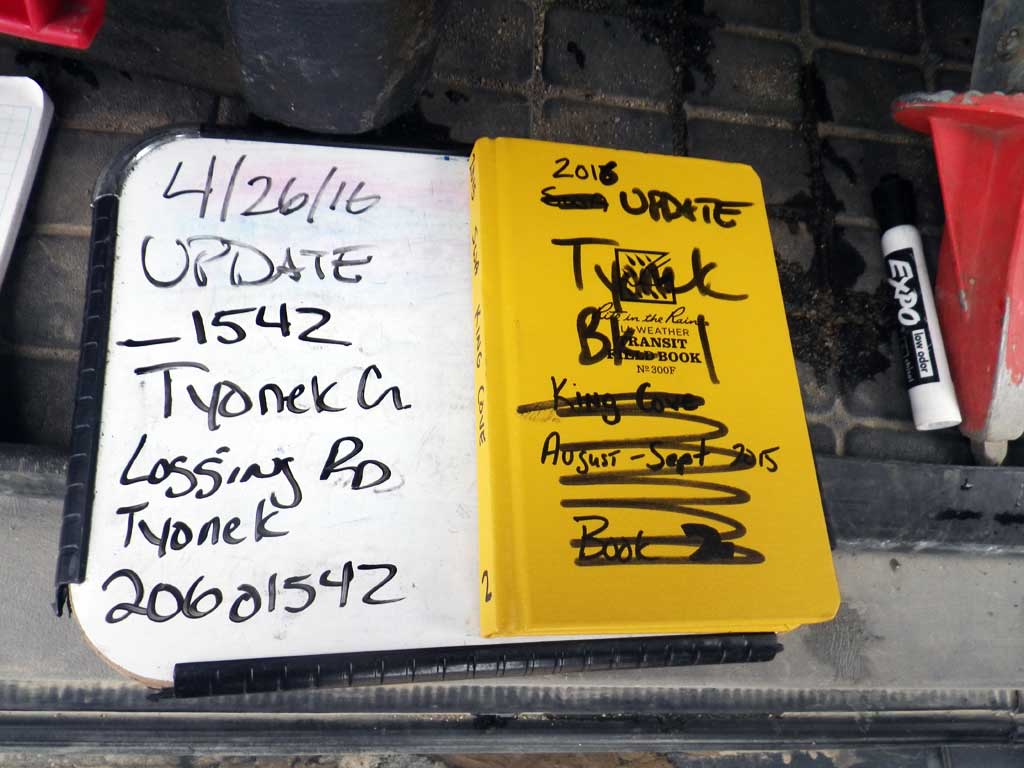 4/26/16
UPDATE
_1542
Tyonek Cr
Logging RD
Tyonek
20601542
2016
UPDATE
Tyonek
Rite in the Rain
ALL-WEATHER
TRANSIT
FIELD BOOK
Nº 300F
Bk 1
King Cove
August - Sept 2015
Book 2
KING COVE
2
EXPO
low odor